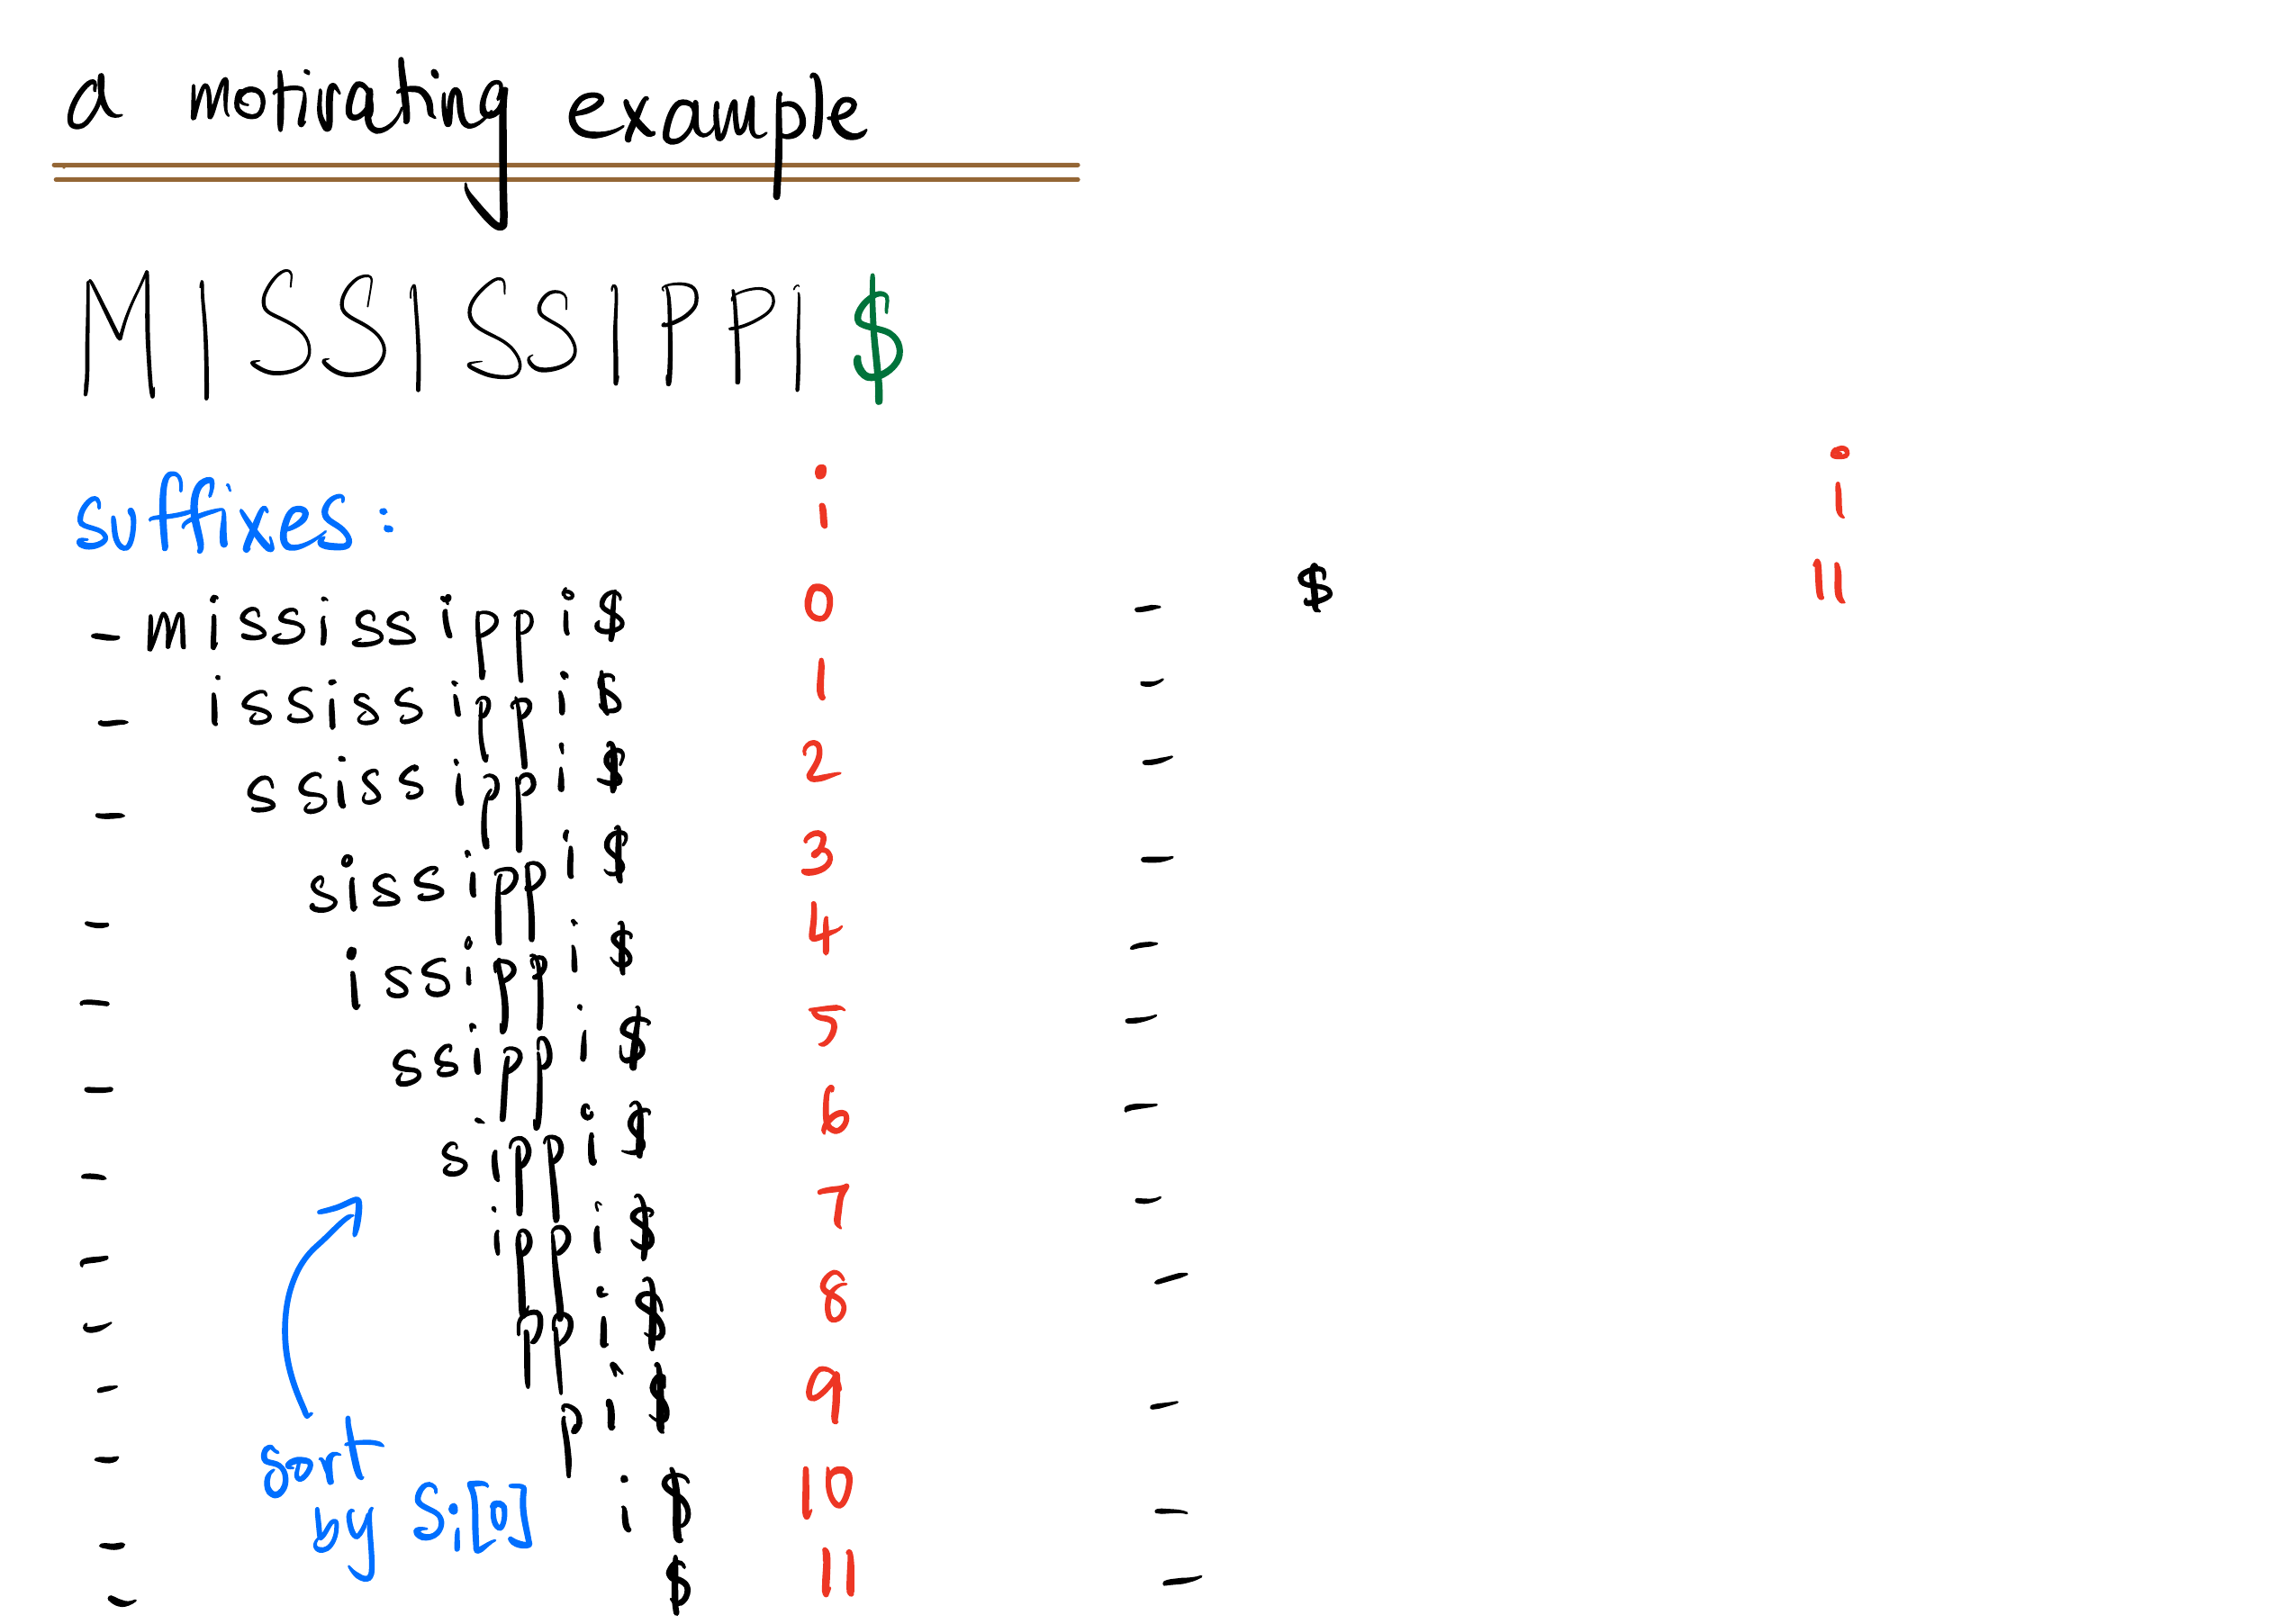 a motivating example
MISSISSIPPI$
suffixes: i i
- mississippi$ 0 - $ 11
- ississippi$ 1 -
- ssissippi$ 2 -
- sissippi$ 3 -
- issippi$ 4 -
- ssippi$ 5 -
- sippi$ 6 -
- ippi$ 7 -
- ppi$ 8 -
- pi$ 9 -
- i$ 10 -
- $ 11 -
sort
by Si[0]